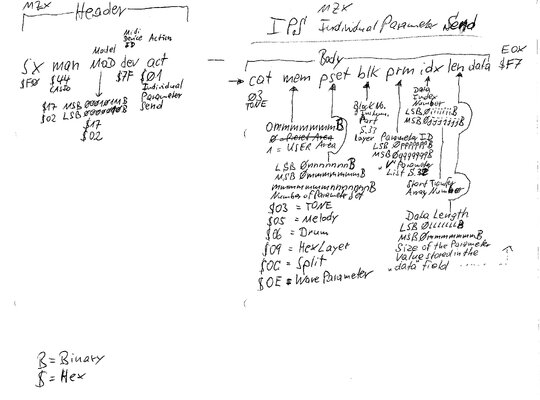 MZX
Header
MZX
IPS Individual Parameter Send
Midi
Device Action
ID
Model
Body
EOX
SX man MOD dev act
cat mem pset blk prm idx len data $F7
$F0 $44 $7F $01
CASIO
Individual
Parameter
Send
$17 MSB
$02 LSB
$17
$02
03
TONE
0mmmmmmmB
1 = USER Area
LSB 0nnnnnnnB
MSB 0mmmmmmmB
mmmmmmmnnnnnnnB
Number of Parameter Set
$03 = TONE
$05 = Melody
$06 = Drum
$09 = HexLayer
$0C = Split
$0E = Wave Parameter
Block No.
Part
S. 33
Layer
Parameter ID
LSB 0pppppppB
MSB 0qqqqqqqB
"V" Parameter
List S. 32
Data
Index
Number
LSB 0iiiiiiiB
MSB 0jjjjjjjB
Start Transfer
Array Number
Data Length
LSB 0lllllllB
MSB 0mmmmmmmB
Size of the Parameter
Value stored in the
"data" field
B = Binary
$ = Hex